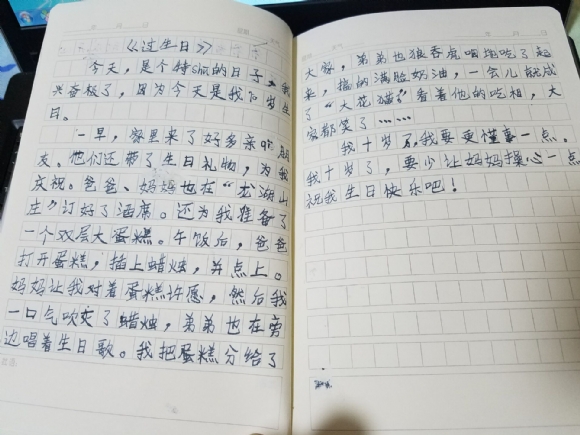 《过生日》
今天，是个特shū的日子，我
兴奋极了，因为今天是我10岁生
日。
一早，家里来了好多亲朋
友。他们还带了生日礼物，为我
庆祝。爸爸、妈妈也在“龙湖山
庄”订好了酒席。还为我准备了
一个双层大蛋糕。午饭后，爸爸
打开蛋糕，插上蜡烛，并点上。
妈妈让我对着蛋糕许愿，然后我
一口气吹灭了蜡烛，弟弟也在旁
边唱着生日歌。我把蛋糕分给了
大家，弟弟也狼吞虎咽地吃了起
来，搞的满脸奶油，一会儿就成
了“大花猫”看着他的吃相，大
家都笑了……
我十岁了，我要更懂事一点。
我十岁了，要少让妈妈操心一点
祝我生日快乐吧！